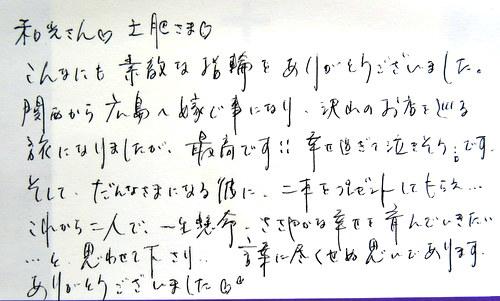 和光さん♡ 土肥さま♡
こんなにも 素敵な指輪を ありがとうございました。
関西から 広島へ嫁ぐ事になり、沢山のお店を巡る
旅になりましたが、最高です!! 幸せ過ぎて泣きそうです。
そして、だんなさまになる彼に、二本をプレゼントしてもらえ…
これから二人で、一生懸命、ささやかな幸せを育んでいきたい
…と 思わせて下さり.. 言葉に尽くせぬ思いであります。
ありがとうございました♡